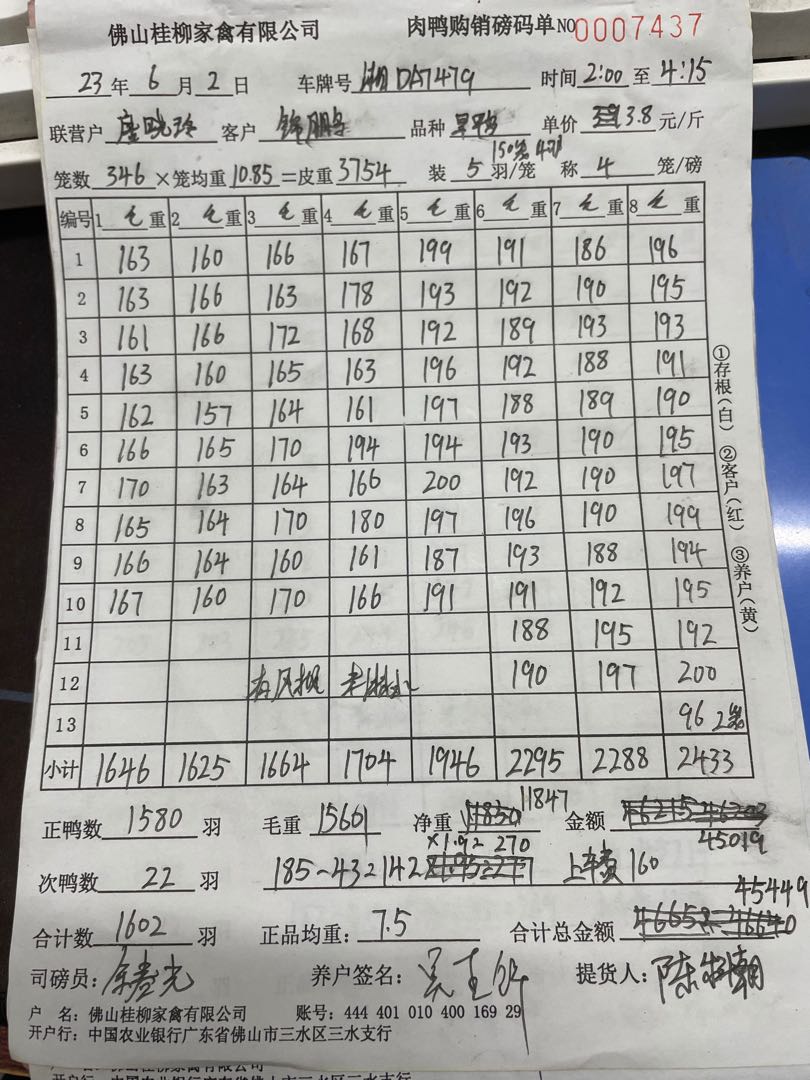 佛山桂柳家禽有限公司 肉鸭购销磅码单 NO 0007437
23 年 6 月 2 日 车牌号 湘DA7479 时间 2:00 至 4:15
联营户 客户 锦鹏 品种 单价 3.8 元/斤
笼数 346 ×笼均重 10.85 =皮重 3754 装 5 羽/笼 称 4 笼/磅
编号 1 毛 重 2 毛 重 3 毛 重 4 毛 重 5 毛 重 6 毛 重 7 毛 重 8 毛 重
1 163 160 166 167 199 191 186 196
2 163 166 163 178 193 192 190 195
3 161 166 172 168 192 189 193 193
4 163 160 165 163 196 192 188 191
5 162 157 164 161 197 188 189 190
6 166 165 170 194 194 193 190 195
7 170 163 164 166 200 192 190 197
8 165 164 170 180 197 196 190 199
9 166 164 160 161 187 193 188 194
10 167 160 170 166 191 191 192 195
11 188 195 192
12 190 197 200
13 96 2笼
小计 1646 1625 1664 1704 1946 2295 2288 2433
正鸭数 1580 羽 毛重 15601 净重 11847 金额 45019
×1.92 270
次鸭数 22 羽 185-43=142 上车费 160
45449
合计数 1602 羽 正品均重: 7.5 合计总金额
司磅员: 养户签名: 提货人:
户 名: 佛山桂柳家禽有限公司 账号: 444 401 010 400 169 29
开户行: 中国农业银行广东省佛山市三水区三水支行
①存根(白) ②客户(红) ③养户(黄)